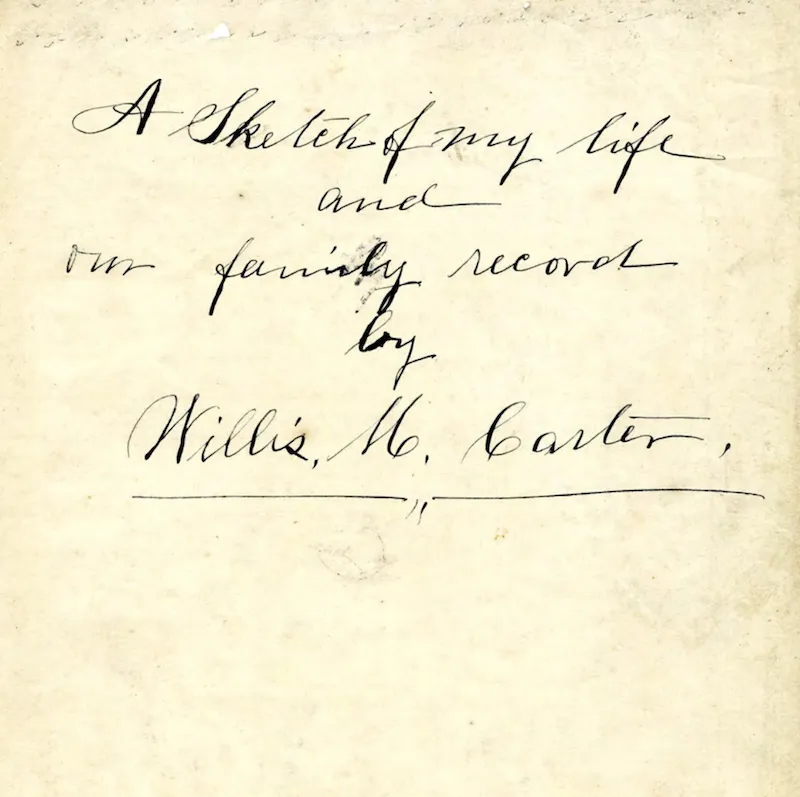 A Sketch of my life
and
our family record
by
Willis. M. Carter.